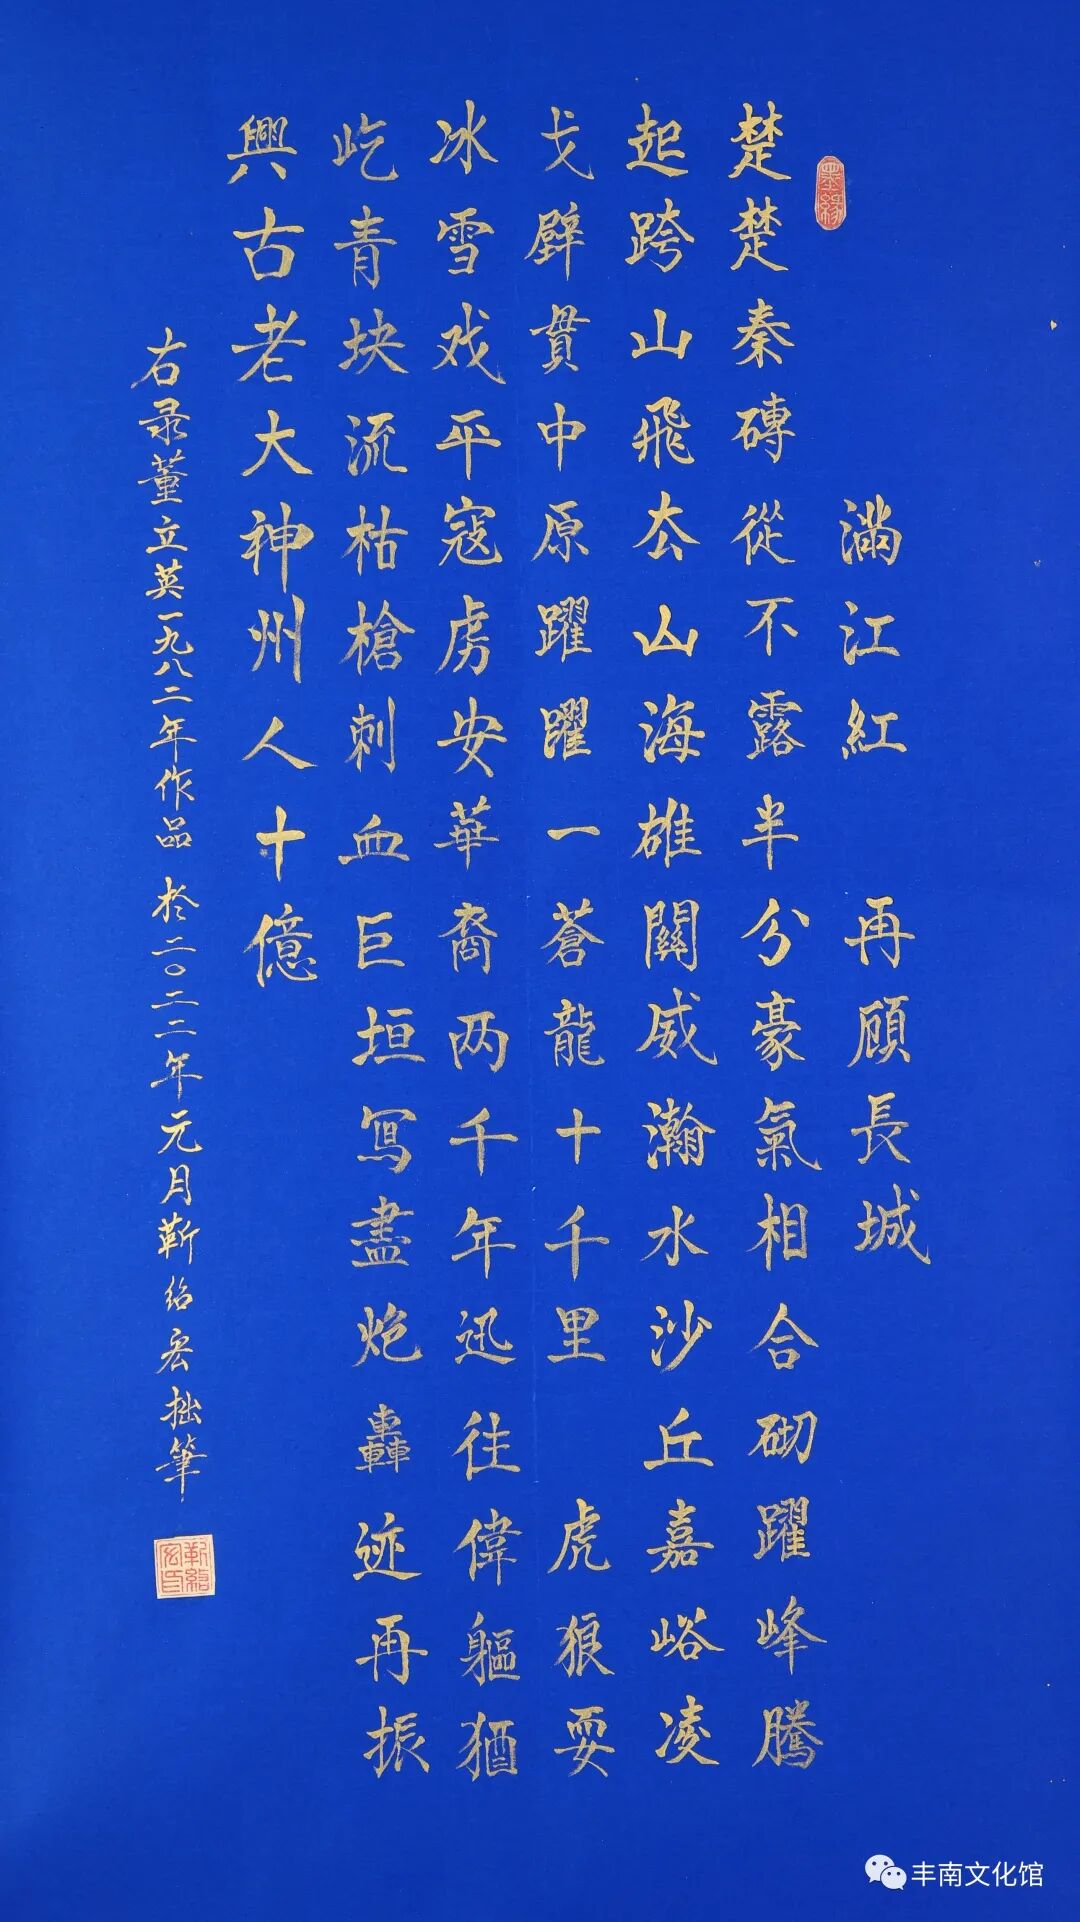 滿江紅 再顧長城
楚楚秦磚從不露半分豪氣相合砌躍峰騰
起跨山飛厺山海雄關威瀚水沙丘嘉峪凌
戈壁貫中原躍躍一蒼龍十千里 虎狼耍
冰雪戏平寇虏安華裔两千年迅往偉軀猶
屹青块流枯槍刺血巨垣寫盡炮轟迹再振
興古老大神州人十億
右录董立英一九八二年作品 於二〇二二年元月靳紹宏拙筆
墨緣
靳紹宏印
丰南文化馆